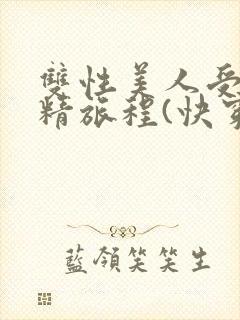 雙性美人受
精旅程(快穿
藍領笑笑生